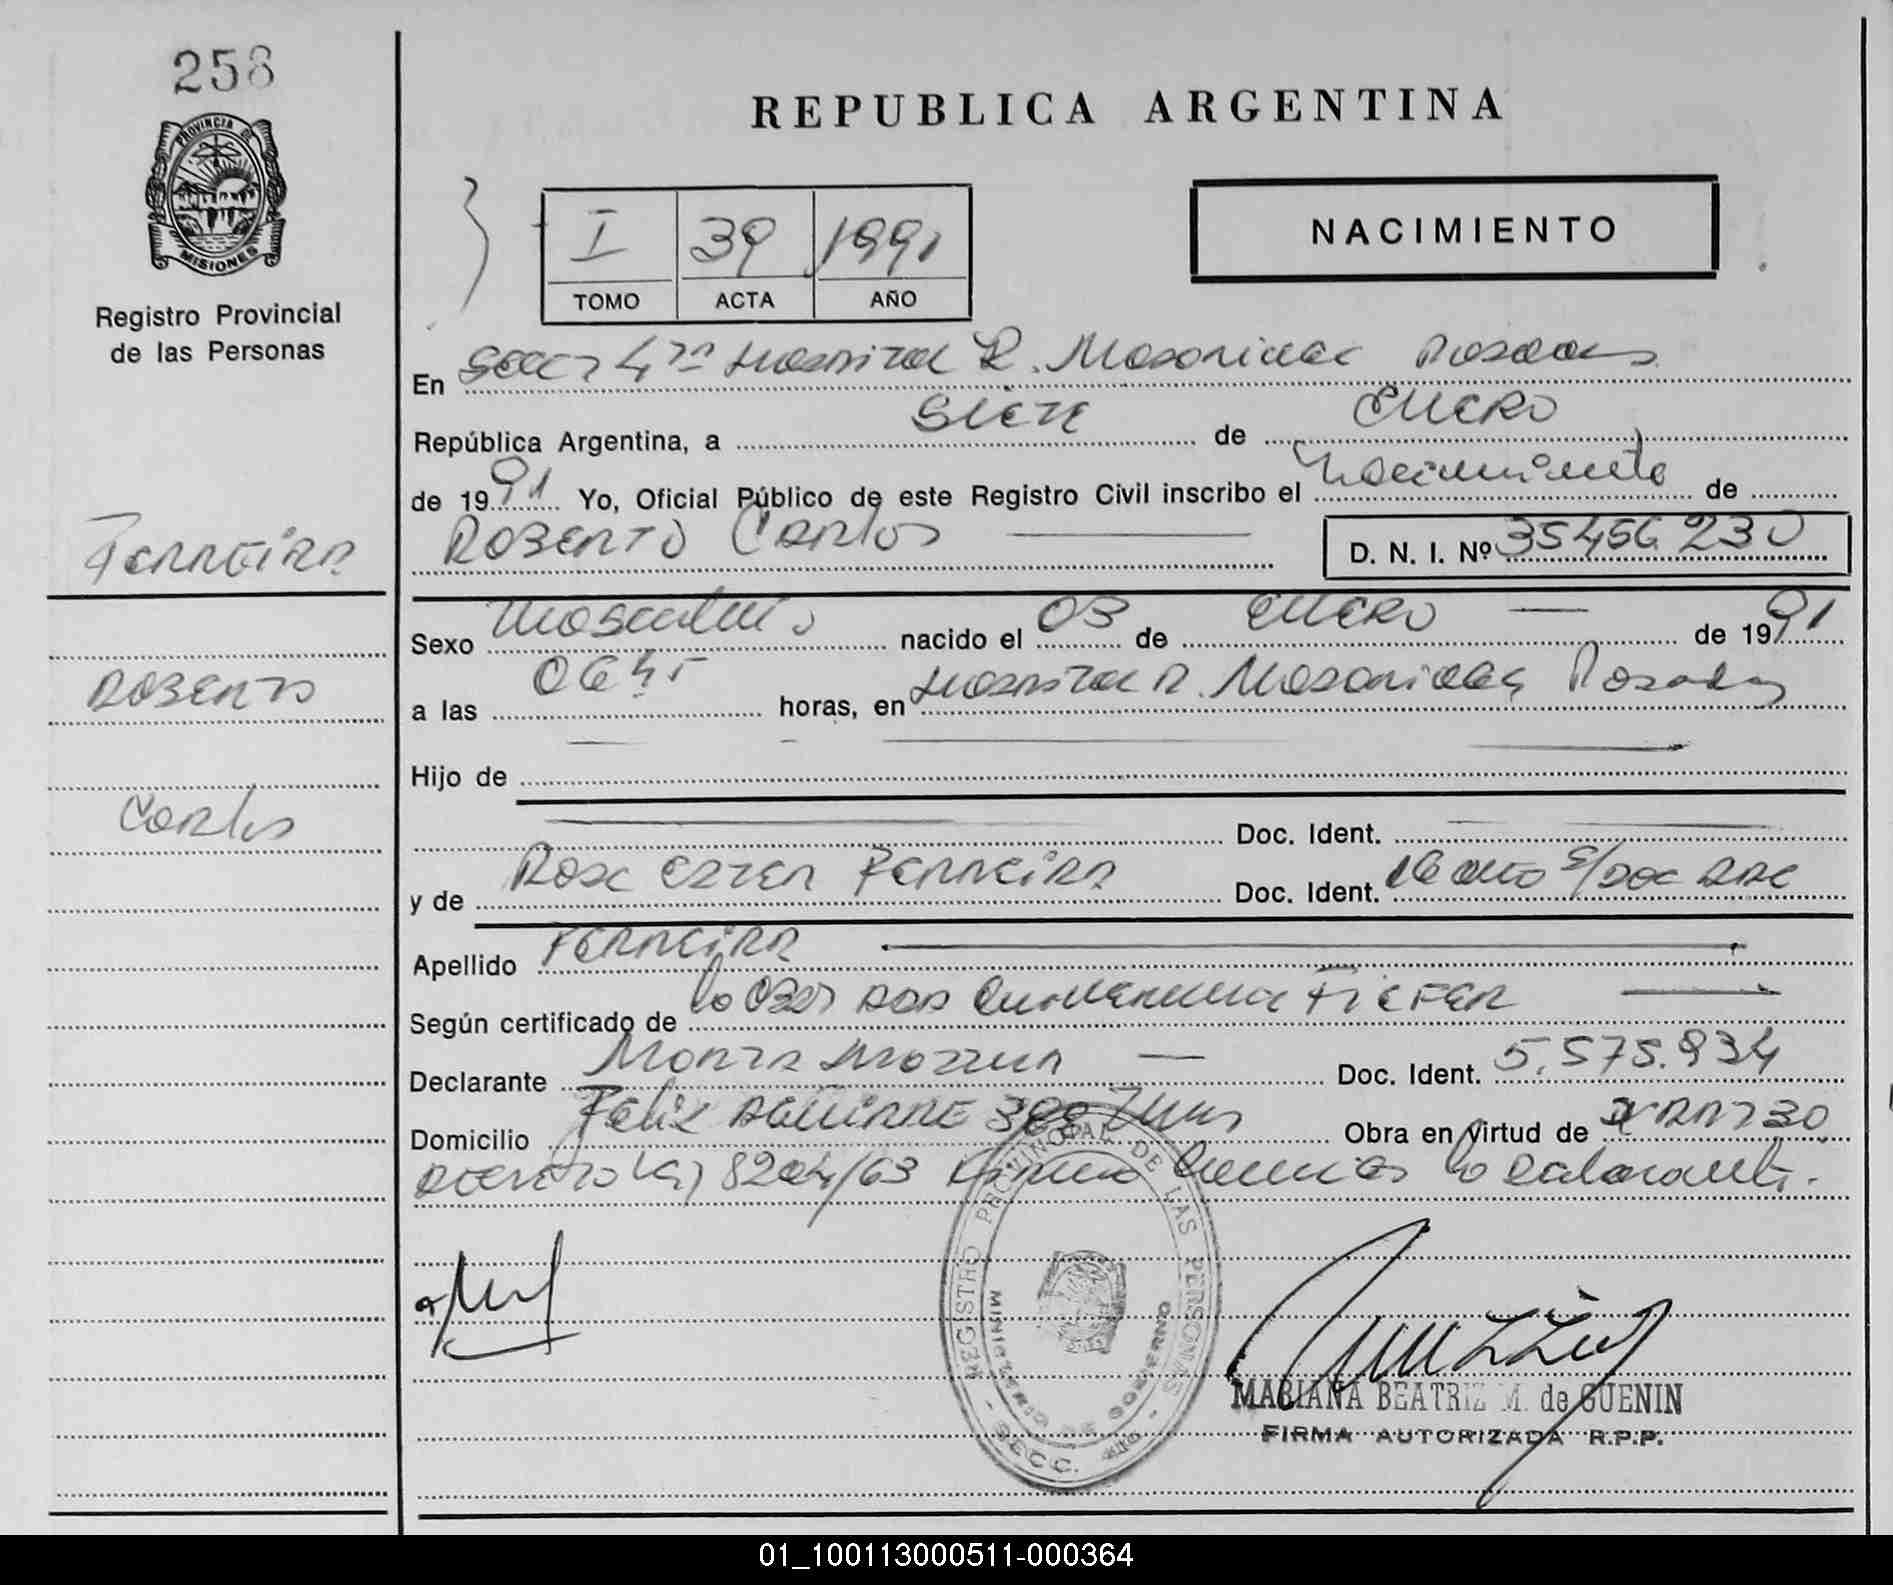 258
PROVINCIA DE
MISIONES
Registro Provincial
de las Personas
REPUBLICA ARGENTINA
I 39 1991
TOMO ACTA AÑO
NACIMIENTO
En Secc 4ta Hospital R. Madariaga Posadas
República Argentina, a Siete de Enero
de 1991 Yo, Oficial Público de este Registro Civil inscribo el Nacimiento de
Roberto Carlos
D. N. I. Nº 35456230
Ferreira
Roberto
Carlos
Sexo Masculino nacido el 03 de Enero de 1991
a las horas, en Hospital R. Madariaga Posadas
Hijo de
Doc. Ident.
y de Rosa Ester Ferreira Doc. Ident. 16 años S/Doc
Apellido Ferreira
Según certificado de la
Declarante Doc. Ident. 5.575.934
Domicilio Felix Aguirre Obra en virtud de
Decreto Ley 8204/63 la Declarante.
REGISTRO PROVINCIAL DE LAS PERSONAS
MINISTERIO DE GOBIERNO
SECC. 4ta
MARIANA BEATRIZ M. de GUENIN
FIRMA AUTORIZADA R.P.P.
01_100113000511-000364